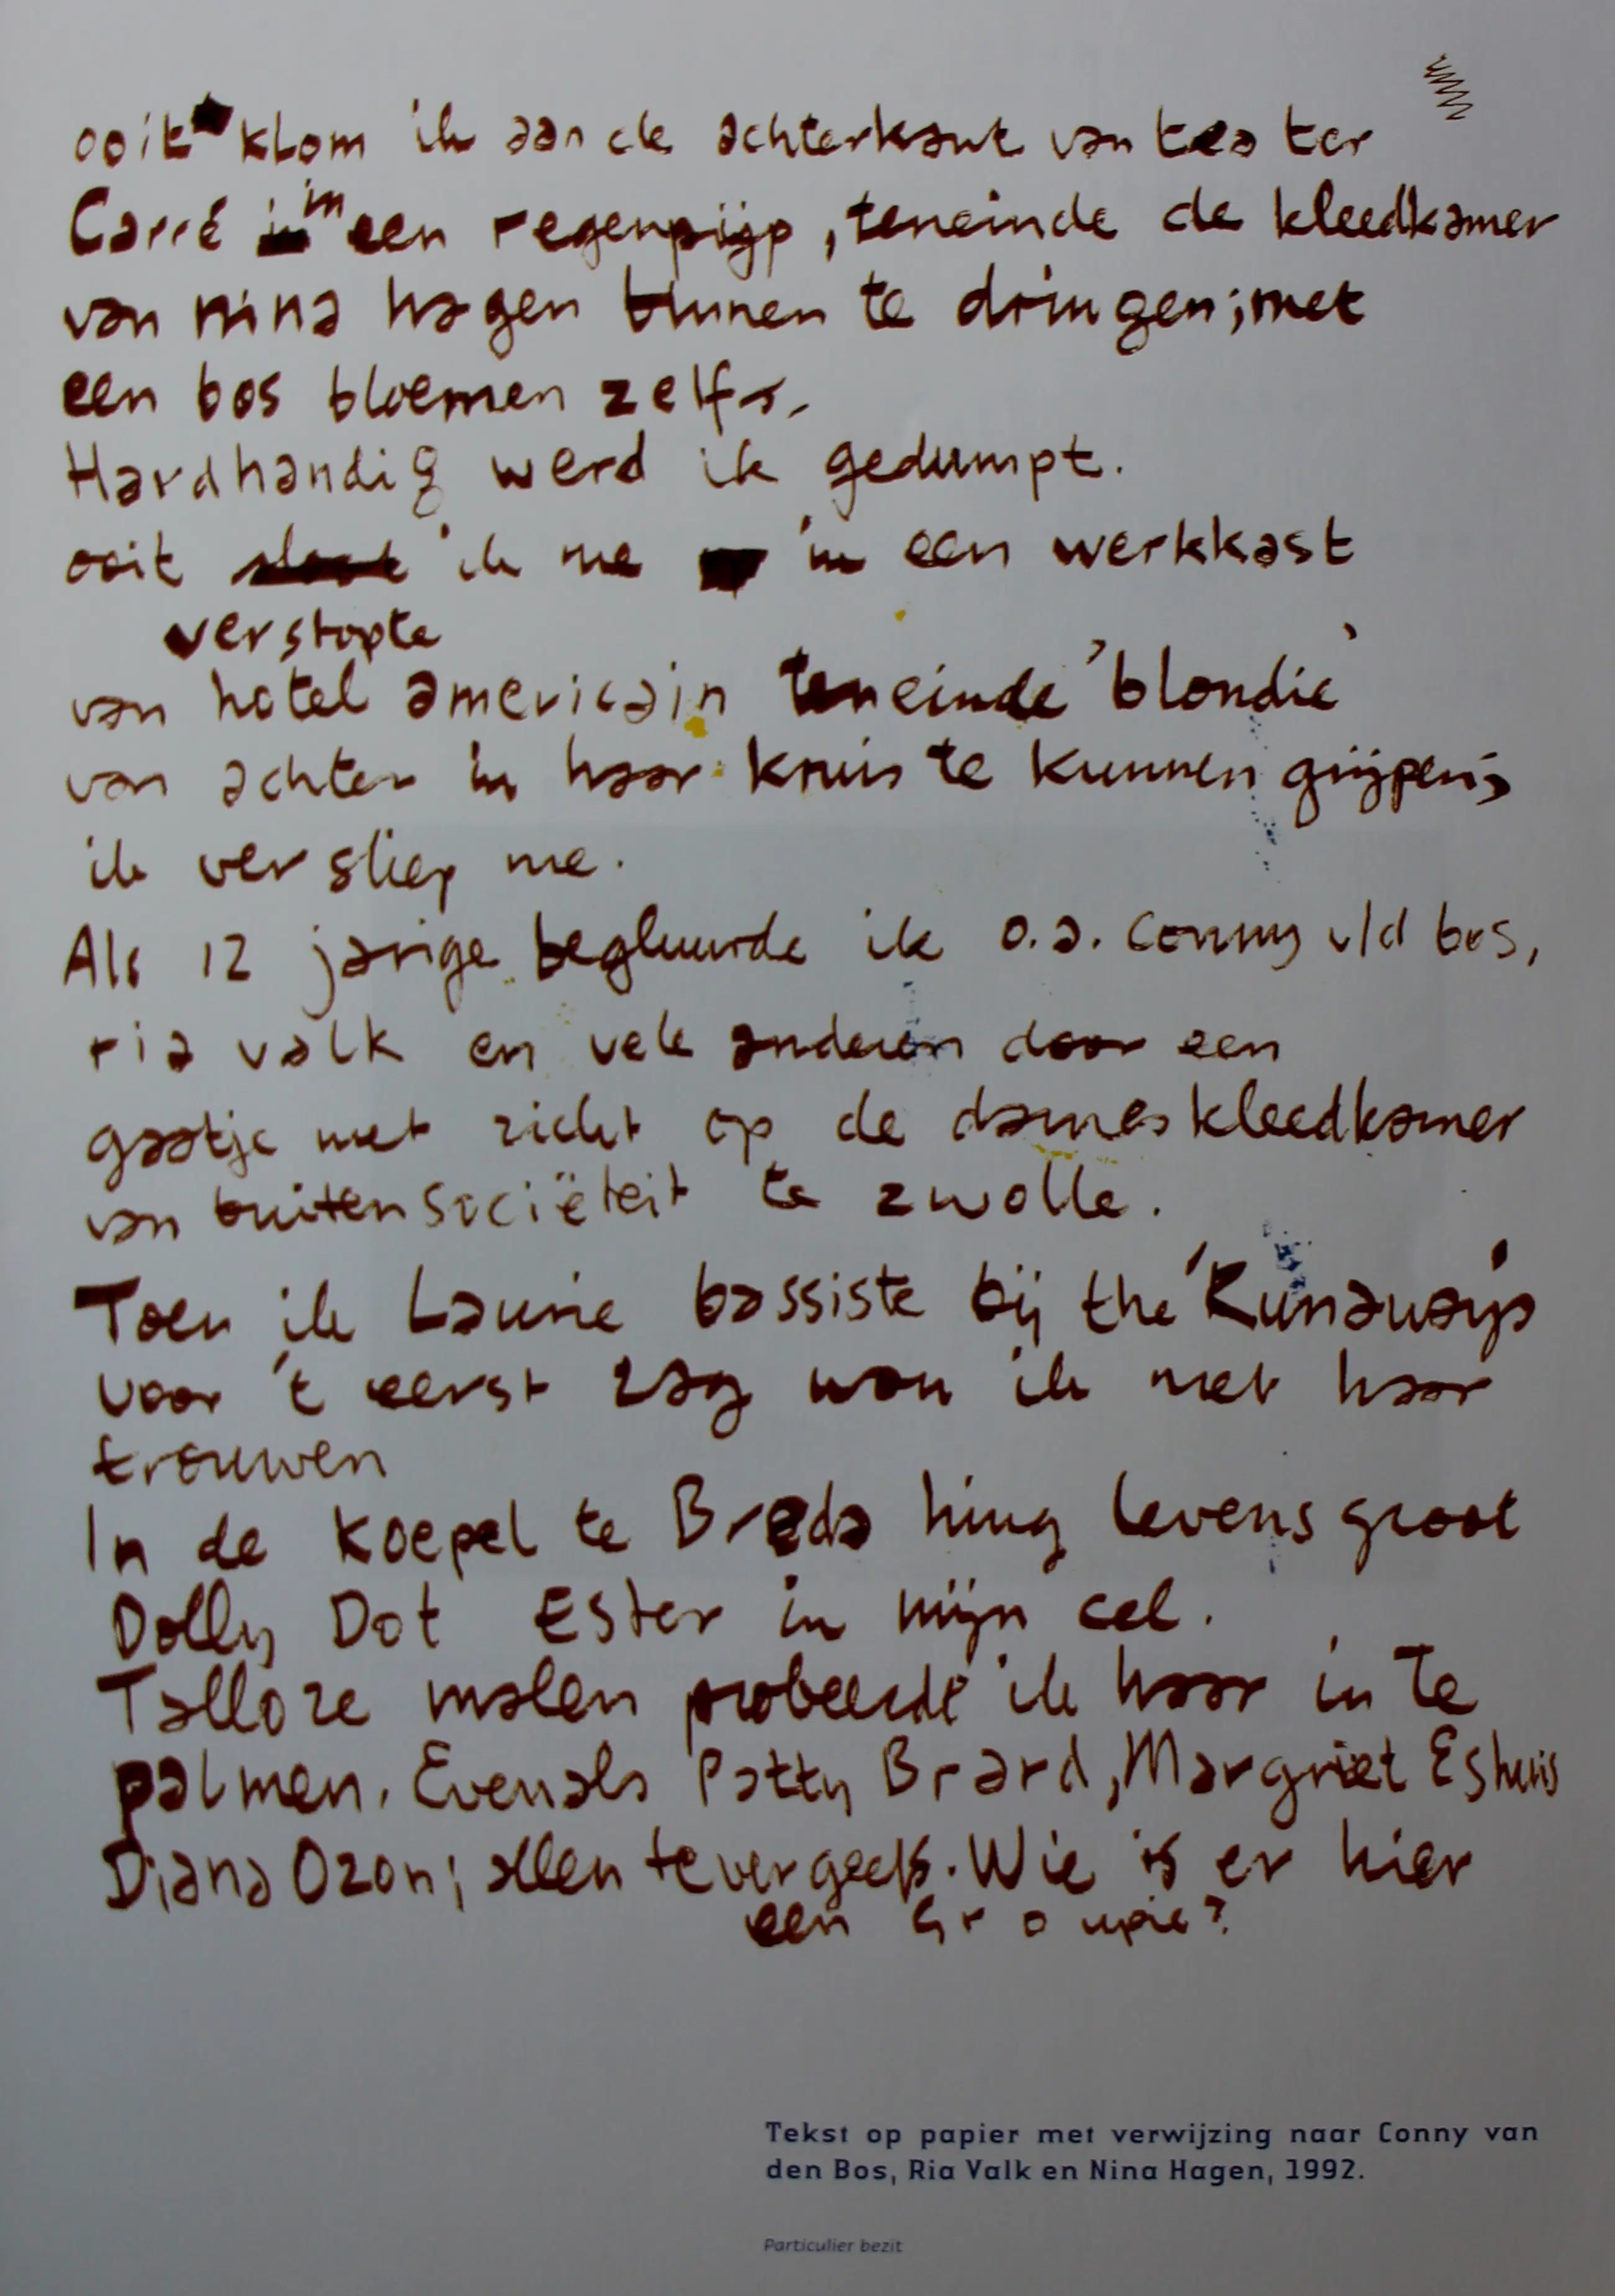 ooit klom ik aan de achterkant van teater
Carré in een regenpijp, teneinde de kleedkamer
van nina hagen binnen te dringen; met
een bos bloemen zelfs.
Hardhandig werd ik gedumpt.
ooit ik me in een werkkast
verstopte
van hotel americain teneinde 'blondie'
van achter in haar kruis te kunnen grijpen;
ik versliep me.
Als 12 jarige begluurde ik o.a. Conny v/d bos,
ria valk en vele anderen door een
gaatje met zicht op de dameskleedkamer
van buitensociëteit te zwolle.
Toen ik Laurie bassiste bij the 'Runaways'
voor 't eerst zag wou ik met haar
trouwen
In de Koepel te Breda hing levensgroot
Dolly Dot Ester in mijn cel.
Talloze malen probeerde ik haar in te
palmen. Evenals Patty Brard, Margriet Eshuis
Diana Ozon; allen tevergeefs. Wie is er hier
een Groupie?
Tekst op papier met verwijzing naar Conny van
den Bos, Ria Valk en Nina Hagen, 1992.
Particulier bezit